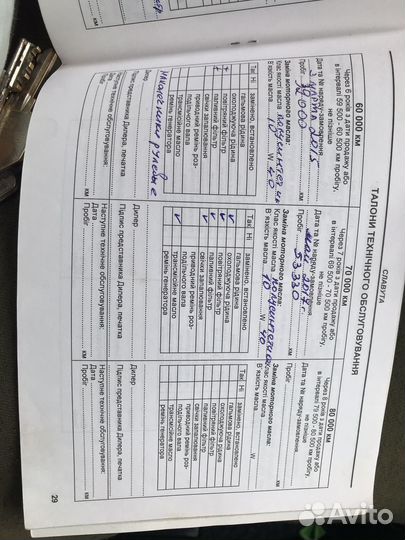 СЛАВУТА
ТАЛОНИ ТЕХНІЧНОГО ОБСЛУГОВУВАННЯ
60 000 км
Через 6 років з дати продажу або
в інтервалі 59 500 - 60 500 км пробігу,
не пізніше
Дата та № наряду-замовлення
2015
Пробіг км
Заміна моторного масла:
Клас якості масла
В'язкість масла W 40
Так Ні
замінено, встановлено
гальмова рідина
охолоджуюча рідина
повітряний фільтр
паливний фільтр
свічки запалювання
привідний ремінь роз-
подільного вала
трансмісійне масло
ремінь генератора
Дилер
Підпис представника Дилера, печатка
Наступне технічне обслуговування:
Дата
Пробіг км
70 000 км
Через 7 років з дати продажу або
в інтервалі 69 500 - 70 500 км пробігу,
не пізніше
Дата та № наряду-замовлення
2017г.
Пробіг 53 320 км
Заміна моторного масла:
Клас якості масла
В'язкість масла 10 W 40
Так Ні
замінено, встановлено
гальмова рідина
охолоджуюча рідина
повітряний фільтр
паливний фільтр
свічки запалювання
привідний ремінь роз-
подільного вала
трансмісійне масло
ремінь генератора
Дилер
Підпис представника Дилера, печатка
Наступне технічне обслуговування:
Дата
Пробіг км
80 000 км
Через 8 років з дати продажу або
в інтервалі 79 500 - 80 500 км пробігу,
не пізніше
Дата та № наряду-замовлення
Пробіг км
Заміна моторного масла:
Клас якості масла
В'язкість масла W
Так Ні
замінено, встановлено
гальмова рідина
охолоджуюча рідина
повітряний фільтр
паливний фільтр
свічки запалювання
привідний ремінь роз-
подільного вала
трансмісійне масло
ремінь генератора
Дилер
Підпис представника Дилера, печатка
Наступне технічне обслуговування:
Дата
Пробіг км
29
Avito